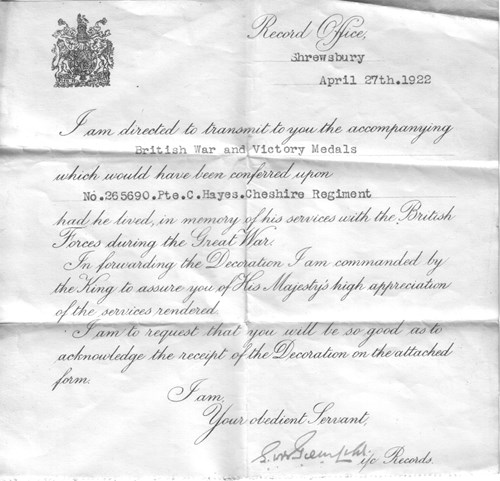 Record Office,
Shrewsbury
April 27th.1922
I am directed to transmit to you the accompanying
British War and Victory Medals
which would have been conferred upon
No.265690.Pte.C.Hayes.Cheshire Regiment
had he lived, in memory of his services with the British
Forces during the Great War.
In forwarding the Decoration I am commanded by
the King to assure you of His Majesty's high appreciation
of the services rendered.
I am to request that you will be so good as to
acknowledge the receipt of the Decoration on the attached
form.
I am,
Your obedient Servant,
i/c Records.